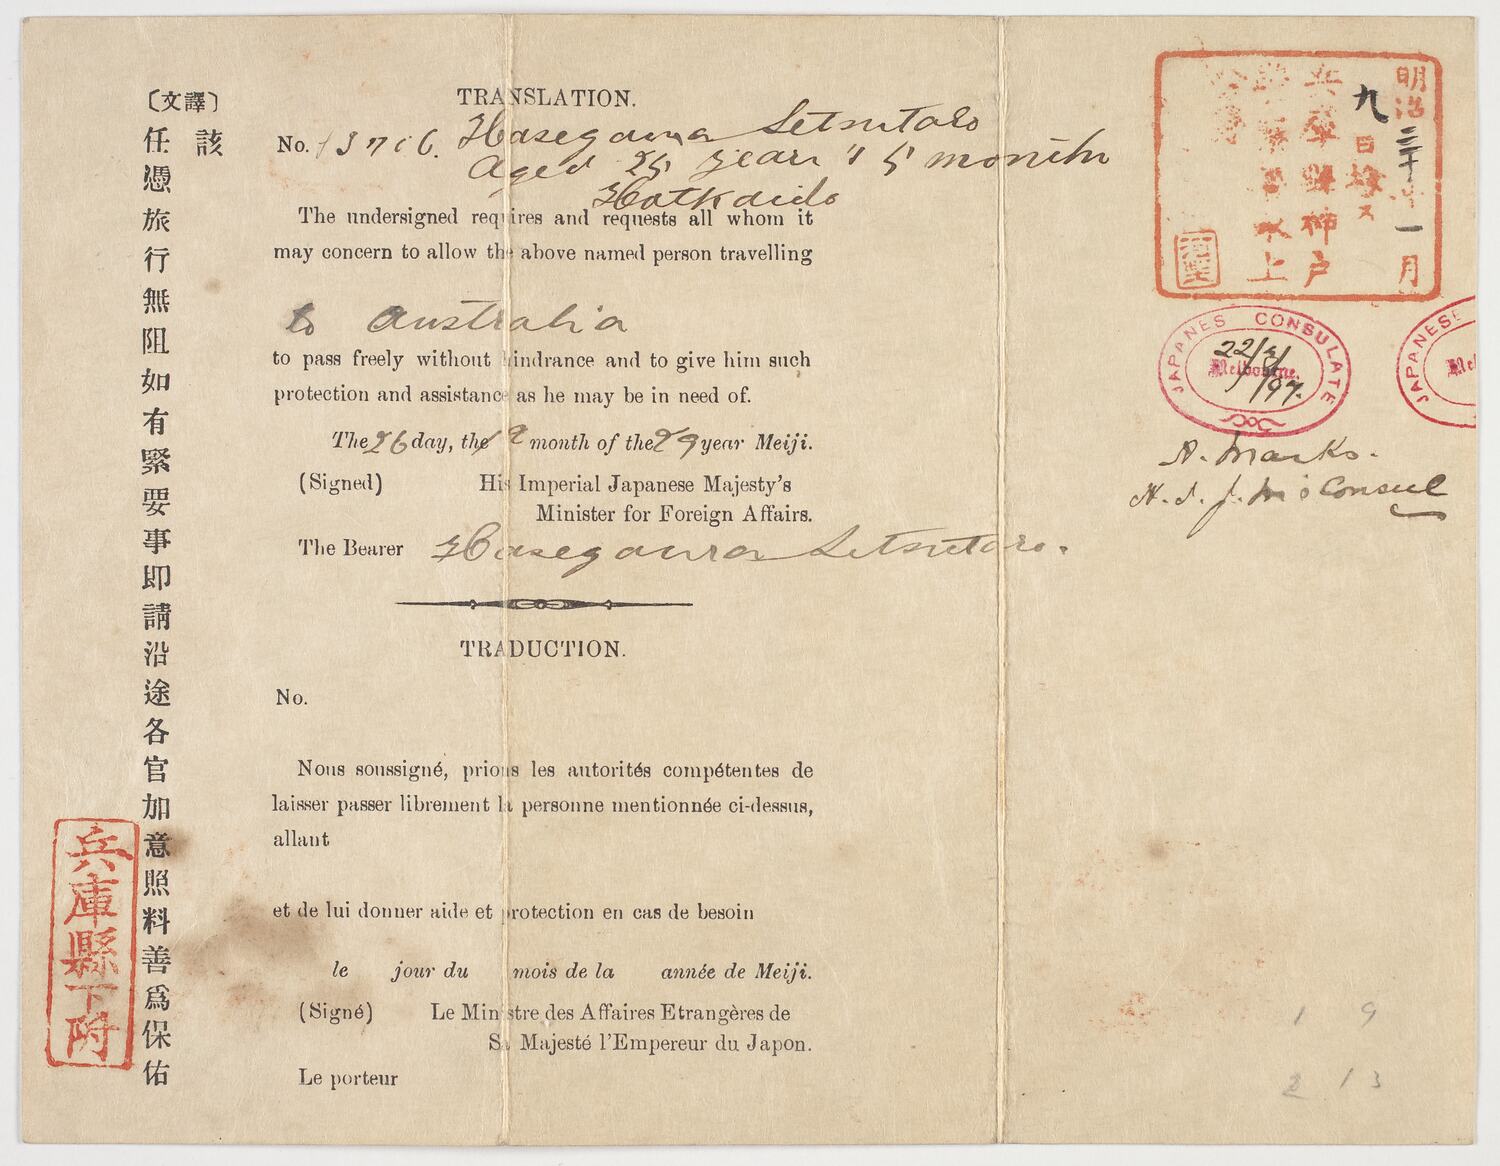 〔譯文〕
該
任憑旅行無阻如有緊要事即請沿途各官加意照料善爲保佑
兵庫縣下附
TRANSLATION.
No. 13716. Hasegawa Setsutaro
Aged 25 years & 5 months
Hotkaido
The undersigned requires and requests all whom it
may concern to allow the above named person travelling
to Australia
to pass freely without hindrance and to give him such
protection and assistance as he may be in need of.
The 26 day, the 12 month of the 29 year Meiji.
(Signed) His Imperial Japanese Majesty's
Minister for Foreign Affairs.
The Bearer Hasegawa Setsutaro.
TRADUCTION.
No.
Nous soussigné, prions les autorités compétentes de
laisser passer librement la personne mentionnée ci-dessus,
allant
et de lui donner aide et protection en cas de besoin
le jour du mois de la année de Meiji.
(Signé) Le Ministre des Affaires Etrangères de
Sa Majesté l'Empereur du Japon.
Le porteur
明治三十年一月
九日
兵庫縣神戸
水上
JAPANES CONSULATE
Melbourne.
22/3/97.
JAPANESE
Mel
A. Marks.
H. I. J. M's Consul
1 9
2 13